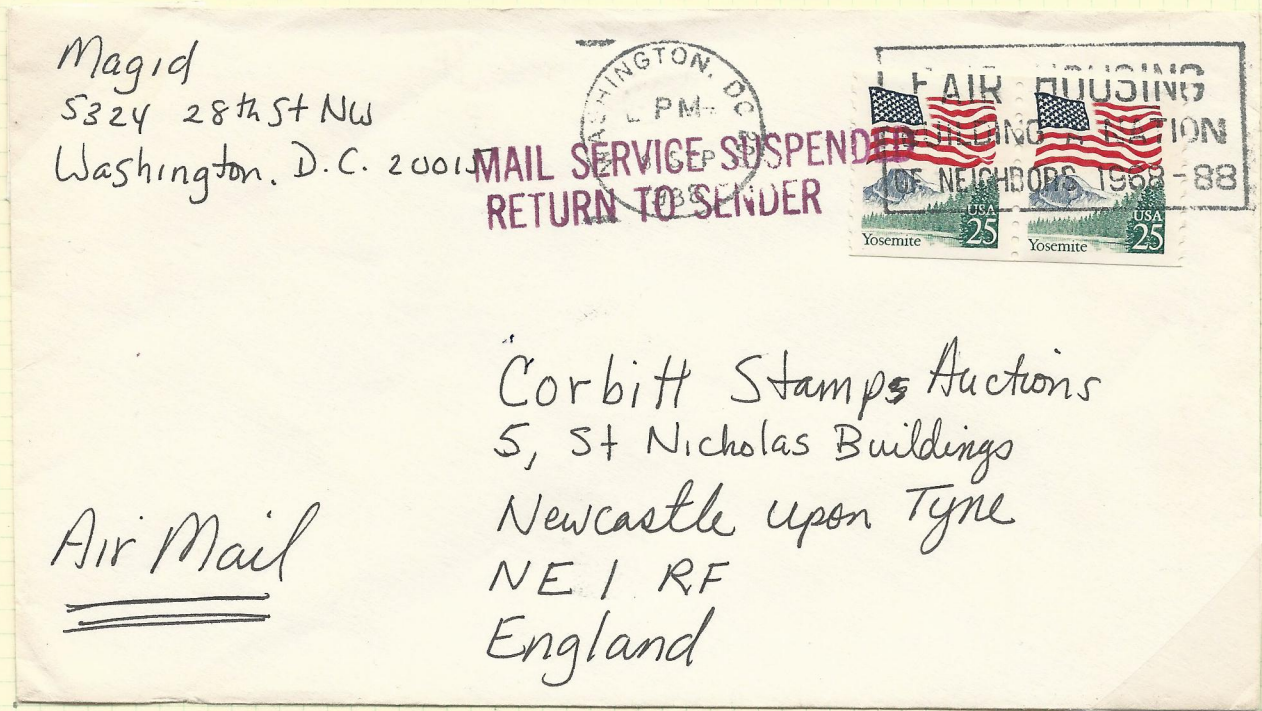 Magid
5324 28th St NW
Washington, D.C. 20015
WASHINGTON, DC
PM
SEP
1988
MAIL SERVICE SUSPENDED
RETURN TO SENDER
FAIR HOUSING
BUILDING A NATION
OF NEIGHBORS 1968-88
Yosemite USA 25
Yosemite USA 25
Corbitt Stamps Auctions
5, St Nicholas Buildings
Newcastle upon Tyne
NE 1 RF
England
Air Mail